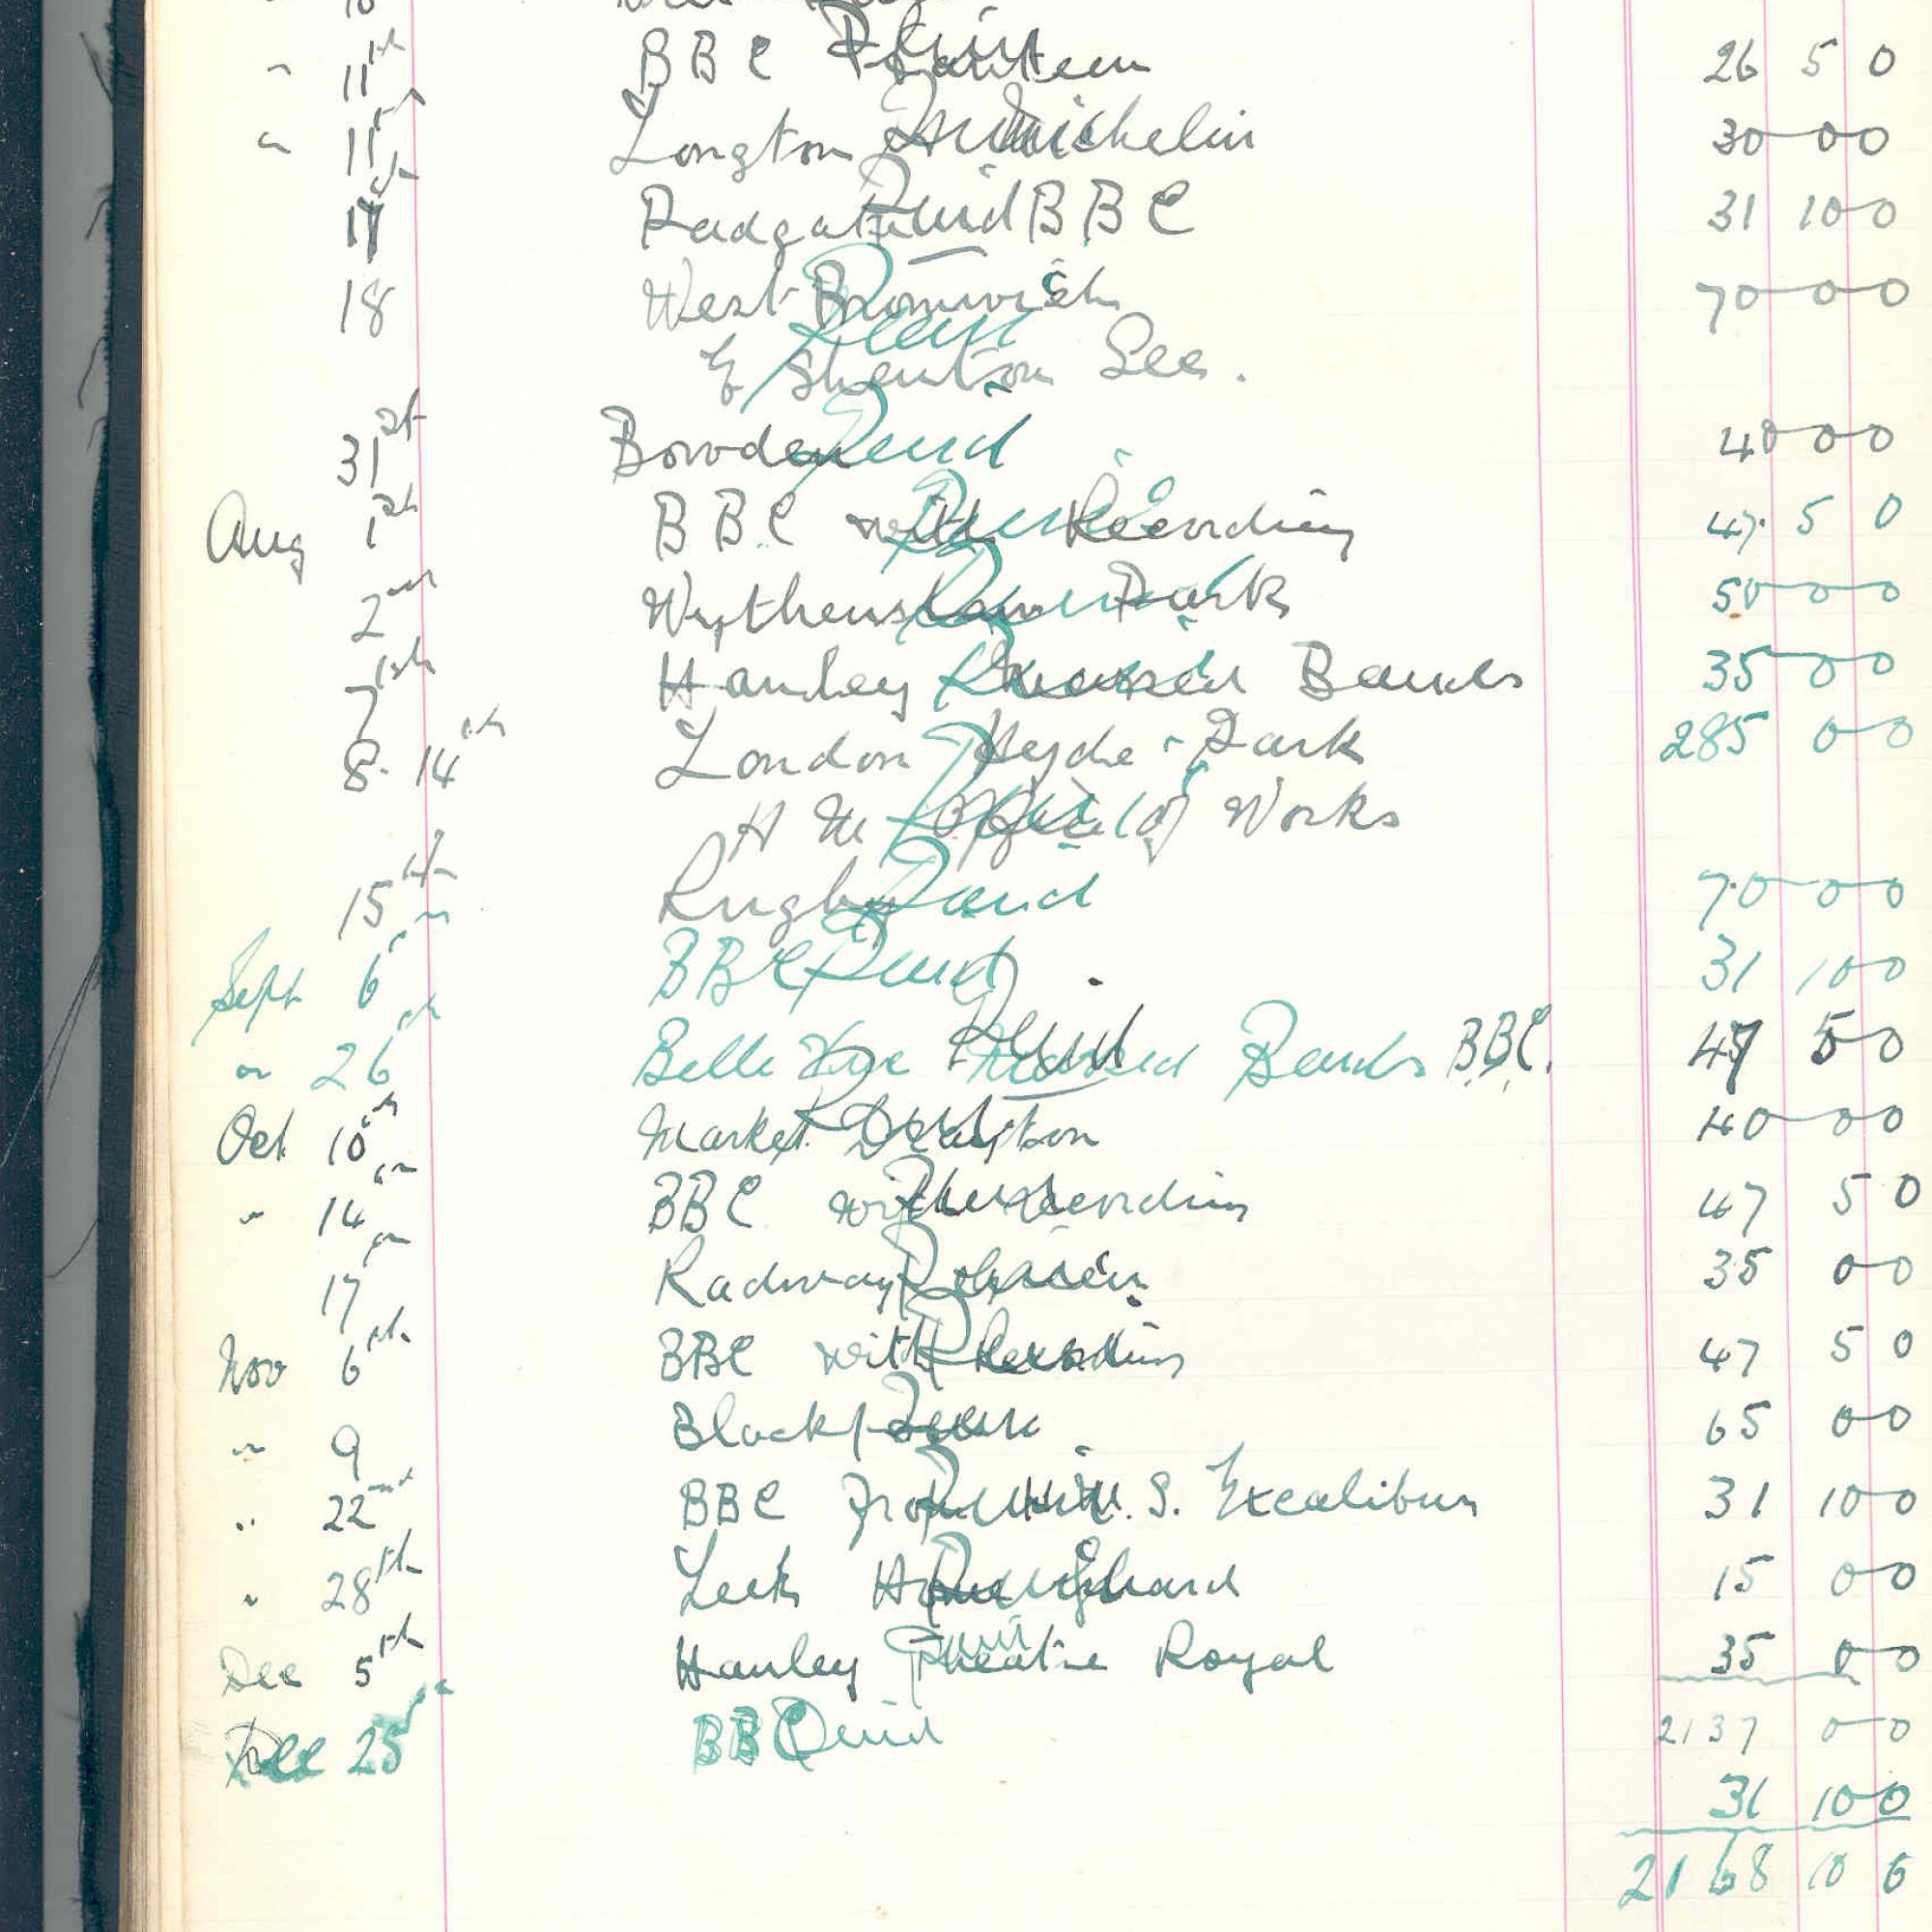 " 11th BBC Paid 26 5 0
" 11th Longton Michelin Paid 30 0 0
17th Padgate Paid BBC 31 10 0
18 West Bromwich 70 0 0
E Shenton Sec. Paid
31st Bowden Paid 40 0 0
Aug 1st BBC with Recording Paid 47 5 0
2nd Wythenshaw Park Paid 50 0 0
7th Hanley Massed Bands Paid 35 0 0
8-14th London Hyde Park 285 0 0
H M Office of Works Paid
15th Rugby Paid 70 0 0
Sept 6th BBC Paid 31 10 0
" 26th Belle Vue Massed Bands BBC. Paid 47 5 0
Oct 10th Market Drayton Paid 40 0 0
" 14th BBC with Recording Paid 47 5 0
17th Radway 35 0 0
Nov 6th BBC with Recording Paid 47 5 0
" 9 Blackpool Paid 65 0 0
" 22nd BBC from H.M.S. Excalibur Paid 31 10 0
" 28th Leek Home Guard Paid 15 0 0
Dec 5th Hanley Theatre Royal Paid 35 0 0
Dec 25th BBC Paid 2137 0 0
31 10 0
2168 10 0